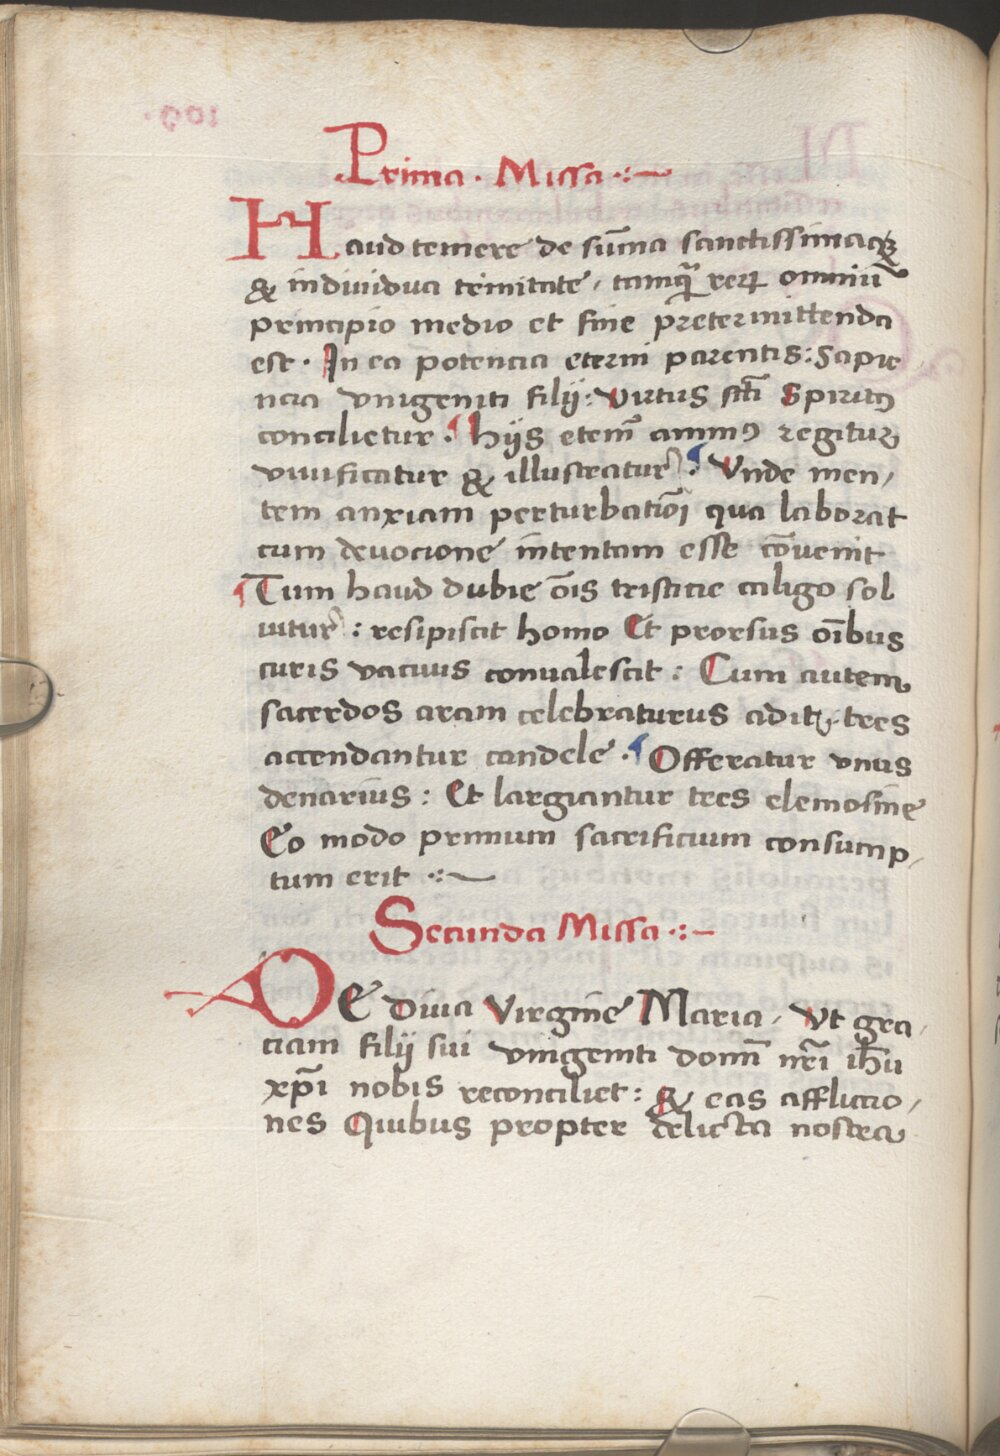 Prima · Missa ·:~
Haud temere de sūma sanctissimaqꝫ
& individua trinitate, tamq̄ꝫ reꝝ omniū
principio medio et fine p̄retermittenda
est · In ea potencia eterni parentis: Sapie
ncia vnigeniti filij: virtus sc̄ti Spiritꝰ
concilietur · ¶ hijs etem̄ animꝰ regitur
viuificatur & illustratur : ¶ Vnde men,
tem anxiam perturbatiōı qua laborat
cum deuocione intentam esse cōvenit
¶ Tum haud dubie ōis tristicie caligo sol
uitur : resipiscit homo Et prorsus oı̄bus
curis vacuus conualescit : Cum autem
sacerdos aram celebraturus adit, tres
accendantur candele · ¶ Offeratur vnus
denarius : Et largiantur tres elemosine
Eo modo primum sacrificium consump,
tum erit ·:~
Secunda Missa ·:~
De diua Virgine Maria, Vt gra,
ciam filij sui vnigeniti domı̄ nr̄i ih̄u
xp̄i nobis reconciliet : & eas afflictio,
nes Quibus propter delicta nostra